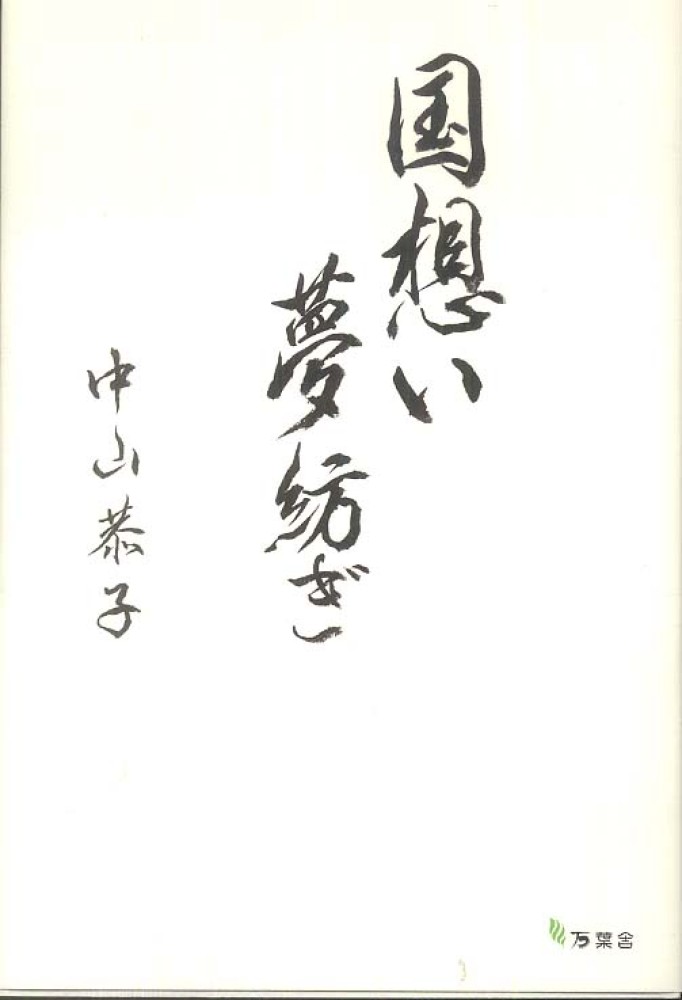 国想い
夢紡ぎ
中山恭子
万葉舎